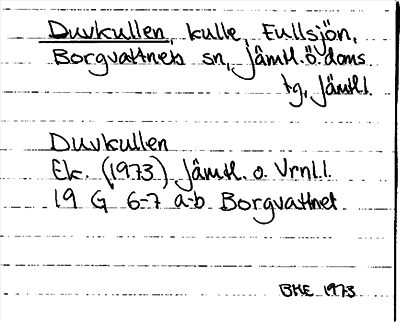 Duvkullen, kulle, Fullsjön,
Borgvattnets sn, Jämtl. ö. doms
tg, Jämtl.l.
Duvkullen
Ek. (1973) Jämtl. o. Vrnl.l.
19 G 6-7 a-b Borgvattnet
BHE 1973